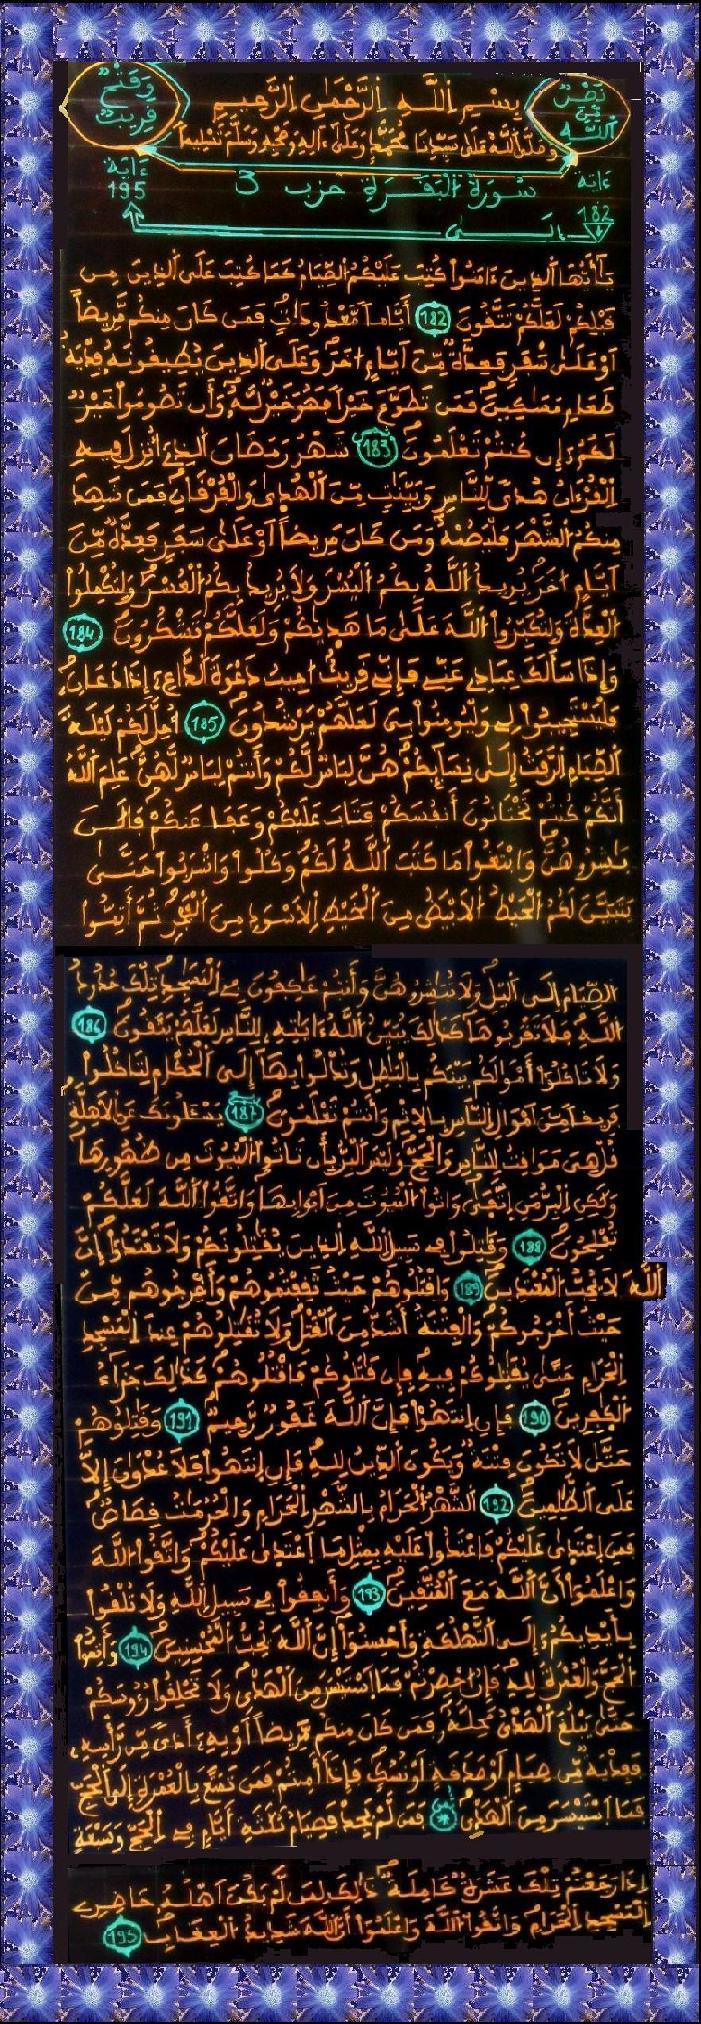 نصر من الله
وفتح قريب
بسم الله الرحمن الرحيم
وصلى الله على سيدنا محمد وعلى ءاله وصحبه وسلم تسليما
سورة البقرة حزب 3
ءاية 182
إلى
ءاية 195
يأيها الذين ءامنوا كتب عليكم الصيام كما كتب على الذين من
قبلكم لعلكم تتقون 182 أياما معدودات فمن كان منكم مريضا
أو على سفر فعدة من أيام أخر وعلى الذين يطيقونه فدية
طعام مسكين فمن تطوع خيرا فهو خير له وأن تصوموا خير
لكم إن كنتم تعلمون 183 شهر رمضان الذي أنزل فيه
القرءان هدى للناس وبينات من الهدى والفرقان فمن شهد
منكم الشهر فليصمه ومن كان مريضا أو على سفر فعدة من
أيام أخر يريد الله بكم اليسر ولا يريد بكم العسر ولتكملوا
العدة ولتكبروا الله على ما هديكم ولعلكم تشكرون 184
وإذا سألك عبادي عني فإني قريب أجيب دعوة الداع إذا دعان
فليستجيبوا لي وليومنوا بي لعلهم يرشدون 185 أحل لكم ليلة
الصيام الرفث إلى نسائكم هن لباس لكم وأنتم لباس لهن علم الله
أنكم كنتم تختانون أنفسكم فتاب عليكم وعفا عنكم فالن
بشروهن وابتغوا ما كتب الله لكم وكلوا واشربوا حتى
يتبين لكم الخيط الابيض من الخيط الاسود من الفجر ثم أتموا
الصيام إلى اليل ولا تبشروهن وأنتم عكفون في المسجد تلك حدود
الله فلا تقربوها كذلك يبين الله ءايته للناس لعلهم يتقون 186
ولا تاكلوا أموالكم بينكم بالبطل وتدلوا بها إلى الحكام لتاكلوا
فريقا من أموال الناس بالاثم وأنتم تعلمون 187 يسئلونك عن الاهلة
قل هي مواقيت للناس والحج وليس البر بأن تاتوا البيوت من ظهورها
ولكن البر من اتقى واتوا البيوت من أبوابها واتقوا الله لعلكم
تفلحون 188 وقتلوا في سبيل الله الذين يقتلونكم ولا تعتدوا إن
الله لا يحب المعتدين 189 واقتلوهم حيث ثقفتموهم وأخرجوهم من
حيث أخرجوكم والفتنة أشد من القتل ولا تقتلوهم عند المسجد
الحرام حتى يقتلوكم فيه فإن قتلوكم فاقتلوهم كذلك جزاء
الكفرين 190 فإن انتهوا فإن الله غفور رحيم 191 وقتلوهم
حتى لا تكون فتنة ويكون الدين لله فإن انتهوا فلا عدوان إلا
على الظلمين 192 الشهر الحرام بالشهر الحرام والحرمت قصاص
فمن اعتدى عليكم فاعتدوا عليه بمثل ما اعتدى عليكم واتقوا الله
واعلموا أن الله مع المتقين 193 وأنفقوا في سبيل الله ولا تلقوا
بأيديكم إلى التهلكة وأحسنوا إن الله يحب المحسنين 194 وأتموا
الحج والعمرة لله فإن احصرتم فما استيسر من الهدي ولا تحلقوا رءوسكم
حتى يبلغ الهدي محله فمن كان منكم مريضا أو به أذى من رأسه
ففدية من صيام أو صدقة أو نسك فإذا أمنتم فمن تمتع بالعمرة إلى الحج
فما استيسر من الهدي فمن لم يجد فصيام ثلثة أيام في الحج وسبعة
إذا رجعتم تلك عشرة كاملة ذلك لمن لم يكن أهله حاضري
المسجد الحرام واتقوا الله واعلموا أن الله شديد العقاب 195